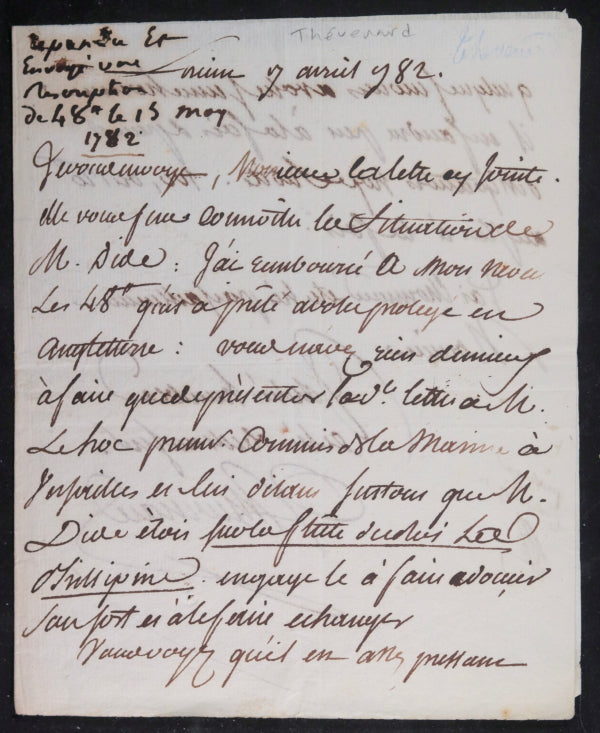 Thévenard
Repondu Et
Envoyé une
rescription
de 48ʰ le 15 may
1782
avril 1782.
Je vous envoye, Monsieur la lettre cy Jointe.
elle vous fera connoitre la Situation de
M. Dide : J'ai remboursé A Mon neveu
Les 48ʰ qu'il a prêté a votre protegé en
angleterre : vous n'avez rien de mieux
à faire que de présenter la dᵉ. lettre à M.
Le hoc premier Commis de la Marine à
Versailles et lui disant surtout que M.
Dide étoit sur la flûte du Roi
engagez le à faire adoucir
son sort et à le faire echanger
Vous voyez qu'il est assez pressant